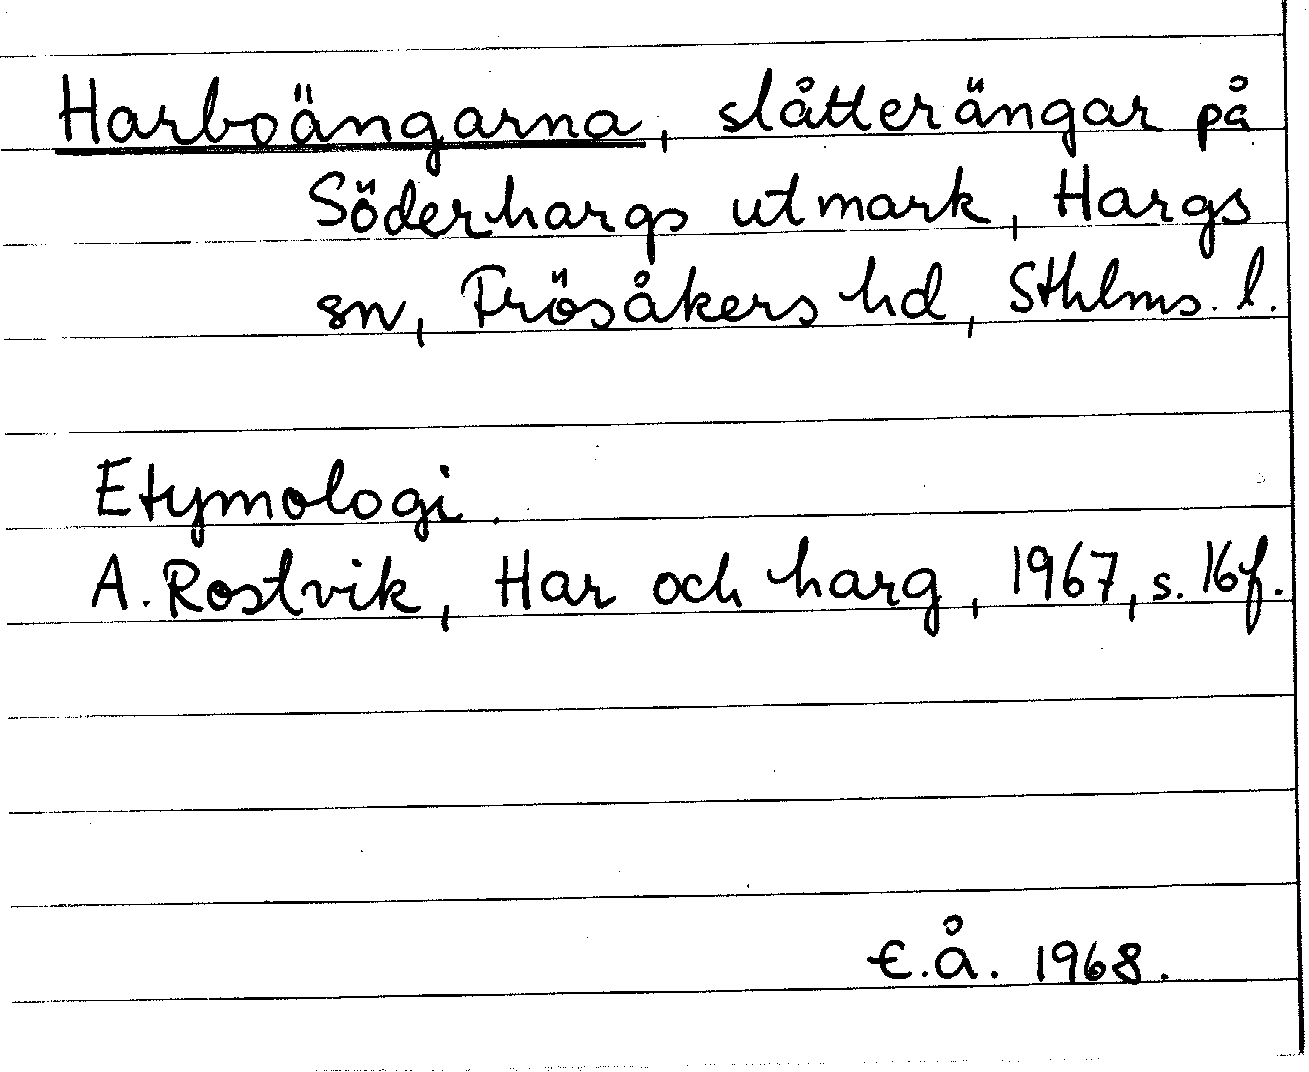 Harboängarna, slåtterängar på
Söderhargs utmark, Hargs
sn, Frösåkers hd, Sthlms. l.
Etymologi.
A. Rostvik, Har och harg, 1967, s. 16f.
E.Å. 1968.